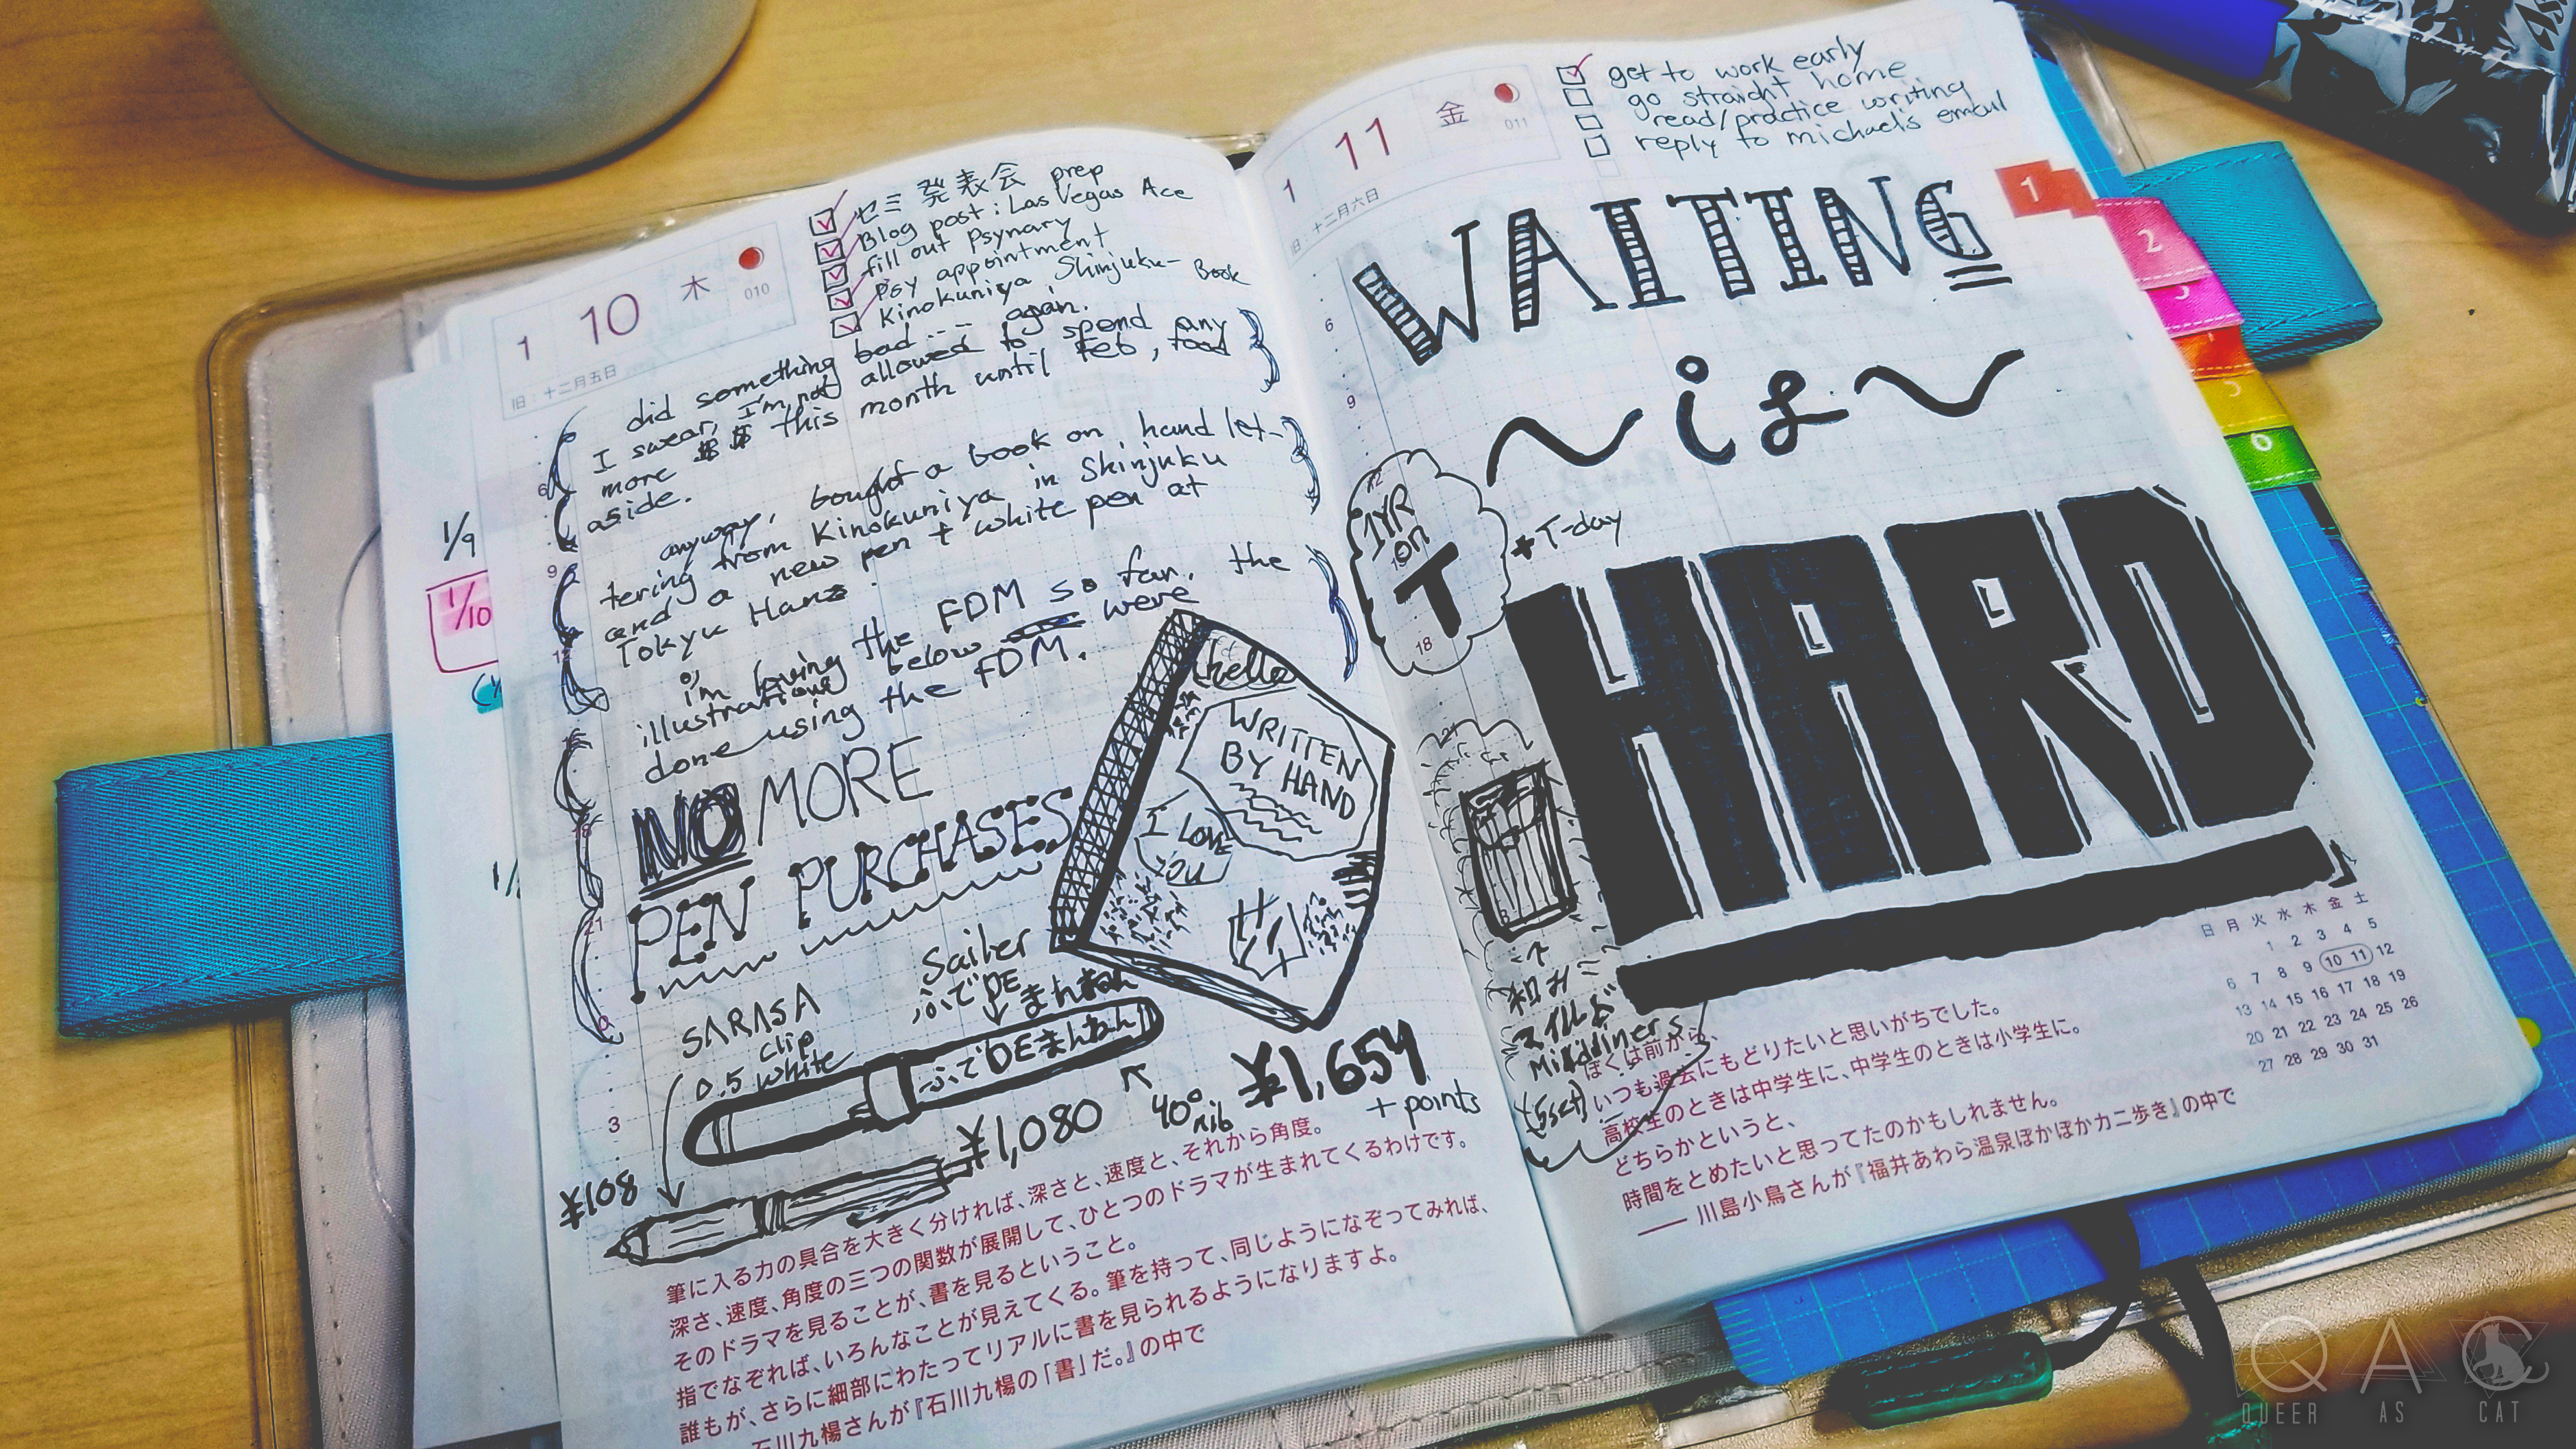 1 10 木
010
旧: 十二月五日
ゼミ発表会 prep
Blog post: Las Vegas Ace
fill out Psynary
psy appointment
Kinokuniya Shinjuku- Book
did something bad.... again.
I swear, I'm not allowed to spend any
more $$ this month until Feb, food
aside.
anyway, bought a book on hand let-
tering from Kinokuniya in Shinjuku
and a new pen + white pen at
Tokyu Hanz
i'm loving the FDM so far. the
illustrations below were
done using the FDM.
NO MORE
PEN PURCHASES
hello
WRITTEN
BY HAND
I LOVE
YOU
Sailer
ふでDE
まんねん
SARASA
clip
0.5 white
ふでDEまんねん
¥1,654
+ points
40° nib
¥1,080
¥108
6
9
12
21
0
3
筆に入る力の具合を大きく分ければ、深さと、速度と、それから角度。
深さ、速度、角度の三つの関数が展開して、ひとつのドラマが生まれてくるわけです。
そのドラマを見ることが、書を見るということ。
指でなぞれば、いろんなことが見えてくる。筆を持って、同じようになぞってみれば、
誰もが、さらに細部にわたってリアルに書を見られるようになりますよ。
石川九楊さんが『石川九楊の「書」だ。』の中で
1/9
1/10
1 11 金
011
旧: 十二月六日
get to work early
go straight home
read/practice writing
reply to michael's email
WAITING
~is~
HARD
1YR
on
T
+T-day
6
9
12
18
21
和み
マイルド
日 月 火 水 木 金 土
1 2 3 4 5
6 7 8 9 10 11 12
13 14 15 16 17 18 19
20 21 22 23 24 25 26
27 28 29 30 31
ぼくは前から、
いつも過去にもどりたいと思いがちでした。
高校生のときは中学生に、中学生のときは小学生に。
どちらかというと、
時間をとめたいと思ってたのかもしれません。
—— 川島小鳥さんが『福井あわら温泉ぽかぽかカニ歩き』の中で
1
2
3
5
6
QAC
QUEER AS CAT